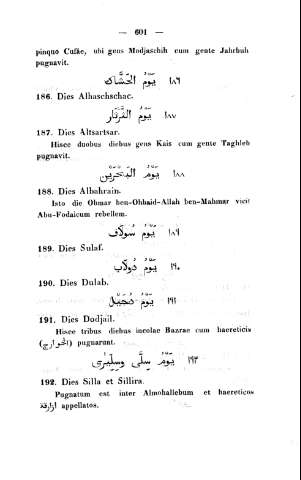 — 601 —
pinquo Cufæ, ubi gens Modjaschih cum gente Jarbuh
pugnavit.
١٨٦ يَوْمُ الحَشَّاك
186. Dies Alhaschschac.
١٨٧ يَوْمُ الثَّرْثَار
187. Dies Altsartsar.
Hisce duobus diebus gens Kais cum gente Taghleb
pugnavit.
١٨٨ يَوْمُ البَحْرَيْن
188. Dies Albahrain.
Isto die Ohmar ben-Obbaid-Allah ben-Mahmar vicit
Abu-Fodaicum rebellem.
١٨٩ يَوْمُ سُولَاف
189. Dies Sulaf.
١٩٠ يَوْمُ دُولَاب
190. Dies Dulab.
١٩١ يَوْمُ دُجَيْل
191. Dies Dodjail.
Hisce tribus diebus incolae Bazrae cum haereticis
(الخوارج) pugnarunt.
١٩٢ يَوْمُ سِلَّى وسِلِّبْرَى
192. Dies Silla et Sillira.
Pugnatum est inter Almohallebum et haereticos
ازارقة appellatos.